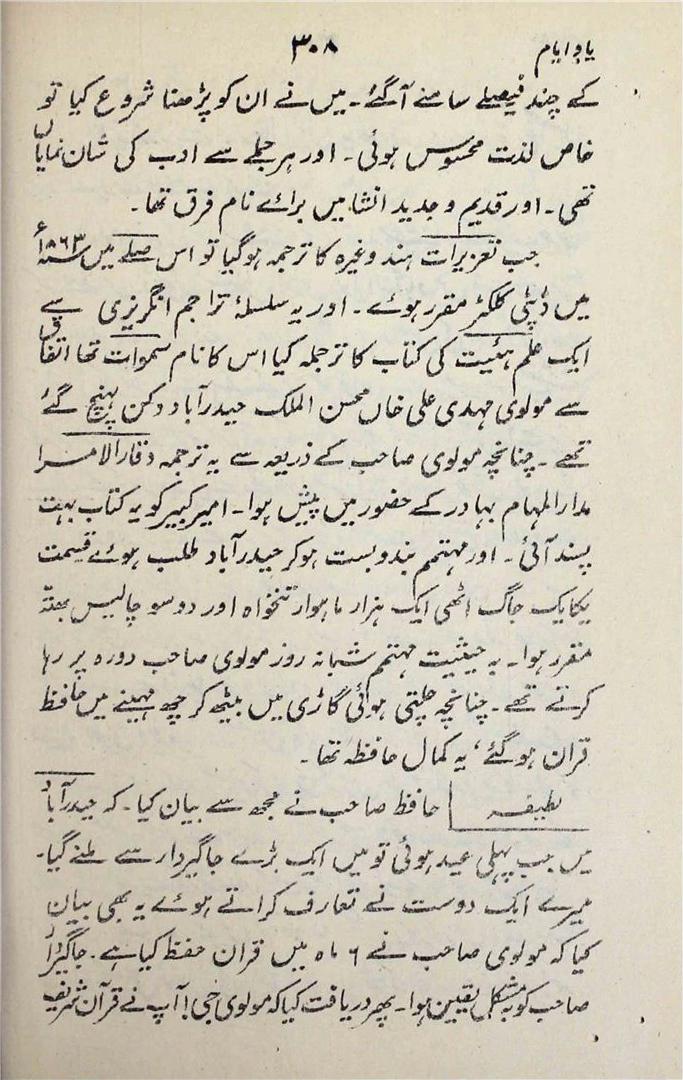 یادِ ایام ۳۰۸
کے چند فیصلے سامنے آگئے۔ میں نے ان کو پڑھنا شروع کیا تو
خاص لذت محسوس ہوئی۔ اور ہر جملے سے ادب کی شان نمایاں
تھی۔ اور قدیم و جدید انشا میں برائے نام فرق تھا۔
جب تعزیرات ہند وغیرہ کا ترجمہ ہوگیا تو اس صلے میں ۱۸۶۳ء
میں ڈپٹی کلکٹر مقرر ہوئے۔ اور یہ سلسلۂ تراجم انگریزی سے
ایک علم ہئیت کی کتاب کا ترجمہ کیا اس کا نام سموات تھا اتفاق
سے مولوی مہدی علی خاں محسن الملک حیدرآباد دکن پہنچ گئے
تھے۔ چنانچہ مولوی صاحب کے ذریعہ سے یہ ترجمہ وقار الامرا
مدار المہام بہادر کے حضور میں پیش ہوا۔ امیر کبیر کو یہ کتاب بہت
پسند آئی۔ اور مہتمم بندوبست ہوکر حیدرآباد طلب ہوئے قسمت
یکایک جاگ اٹھی ایک ہزار ماہوار تنخواہ اور دو سو چالیس بھتّہ
مقرر ہوا۔ بہ حیثیت مہتمم شبانہ روز مولوی صاحب دورہ پر رہا
کرتے تھے۔ چنانچہ چلتی ہوئی گاڑی میں بیٹھ کر چھ مہینے میں حافظ
قران ہوگئے، یہ کمال حافظہ تھا۔
لطیفہ حافظ صاحب نے مجھ سے بیان کیا۔ کہ حیدرآباد
میں جب پہلی عید ہوئی تو میں ایک بڑے جاگیردار سے ملنے گیا۔
میرے ایک دوست نے تعارف کراتے ہوئے یہ بھی بیان
کیا کہ مولوی صاحب نے ۶ ماہ میں قران حفظ کیا ہے۔ جاگیردار
صاحب کو بہ مشکل یقین ہوا۔ پھر دریافت کیا کہ مولوی جی! آپ نے قرآن شریف